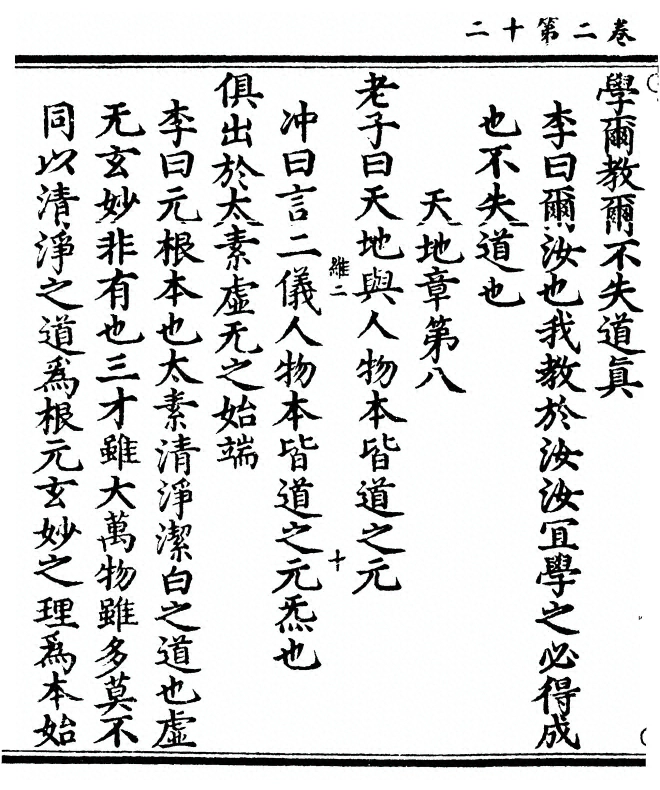 卷二第十二
學爾教爾不失道眞
李曰爾汝也我教於汝汝冝學之必得成
也不失道也
天地章第八
老子曰天地與人物本皆道之元
維二
十
冲曰言二儀人物本皆道之元炁也
俱出於太素虛无之始端
李曰元根本也太素清淨潔白之道也虛
无玄妙非有也三才雖大萬物雖多莫不
同以清淨之道爲根元玄妙之理爲本始